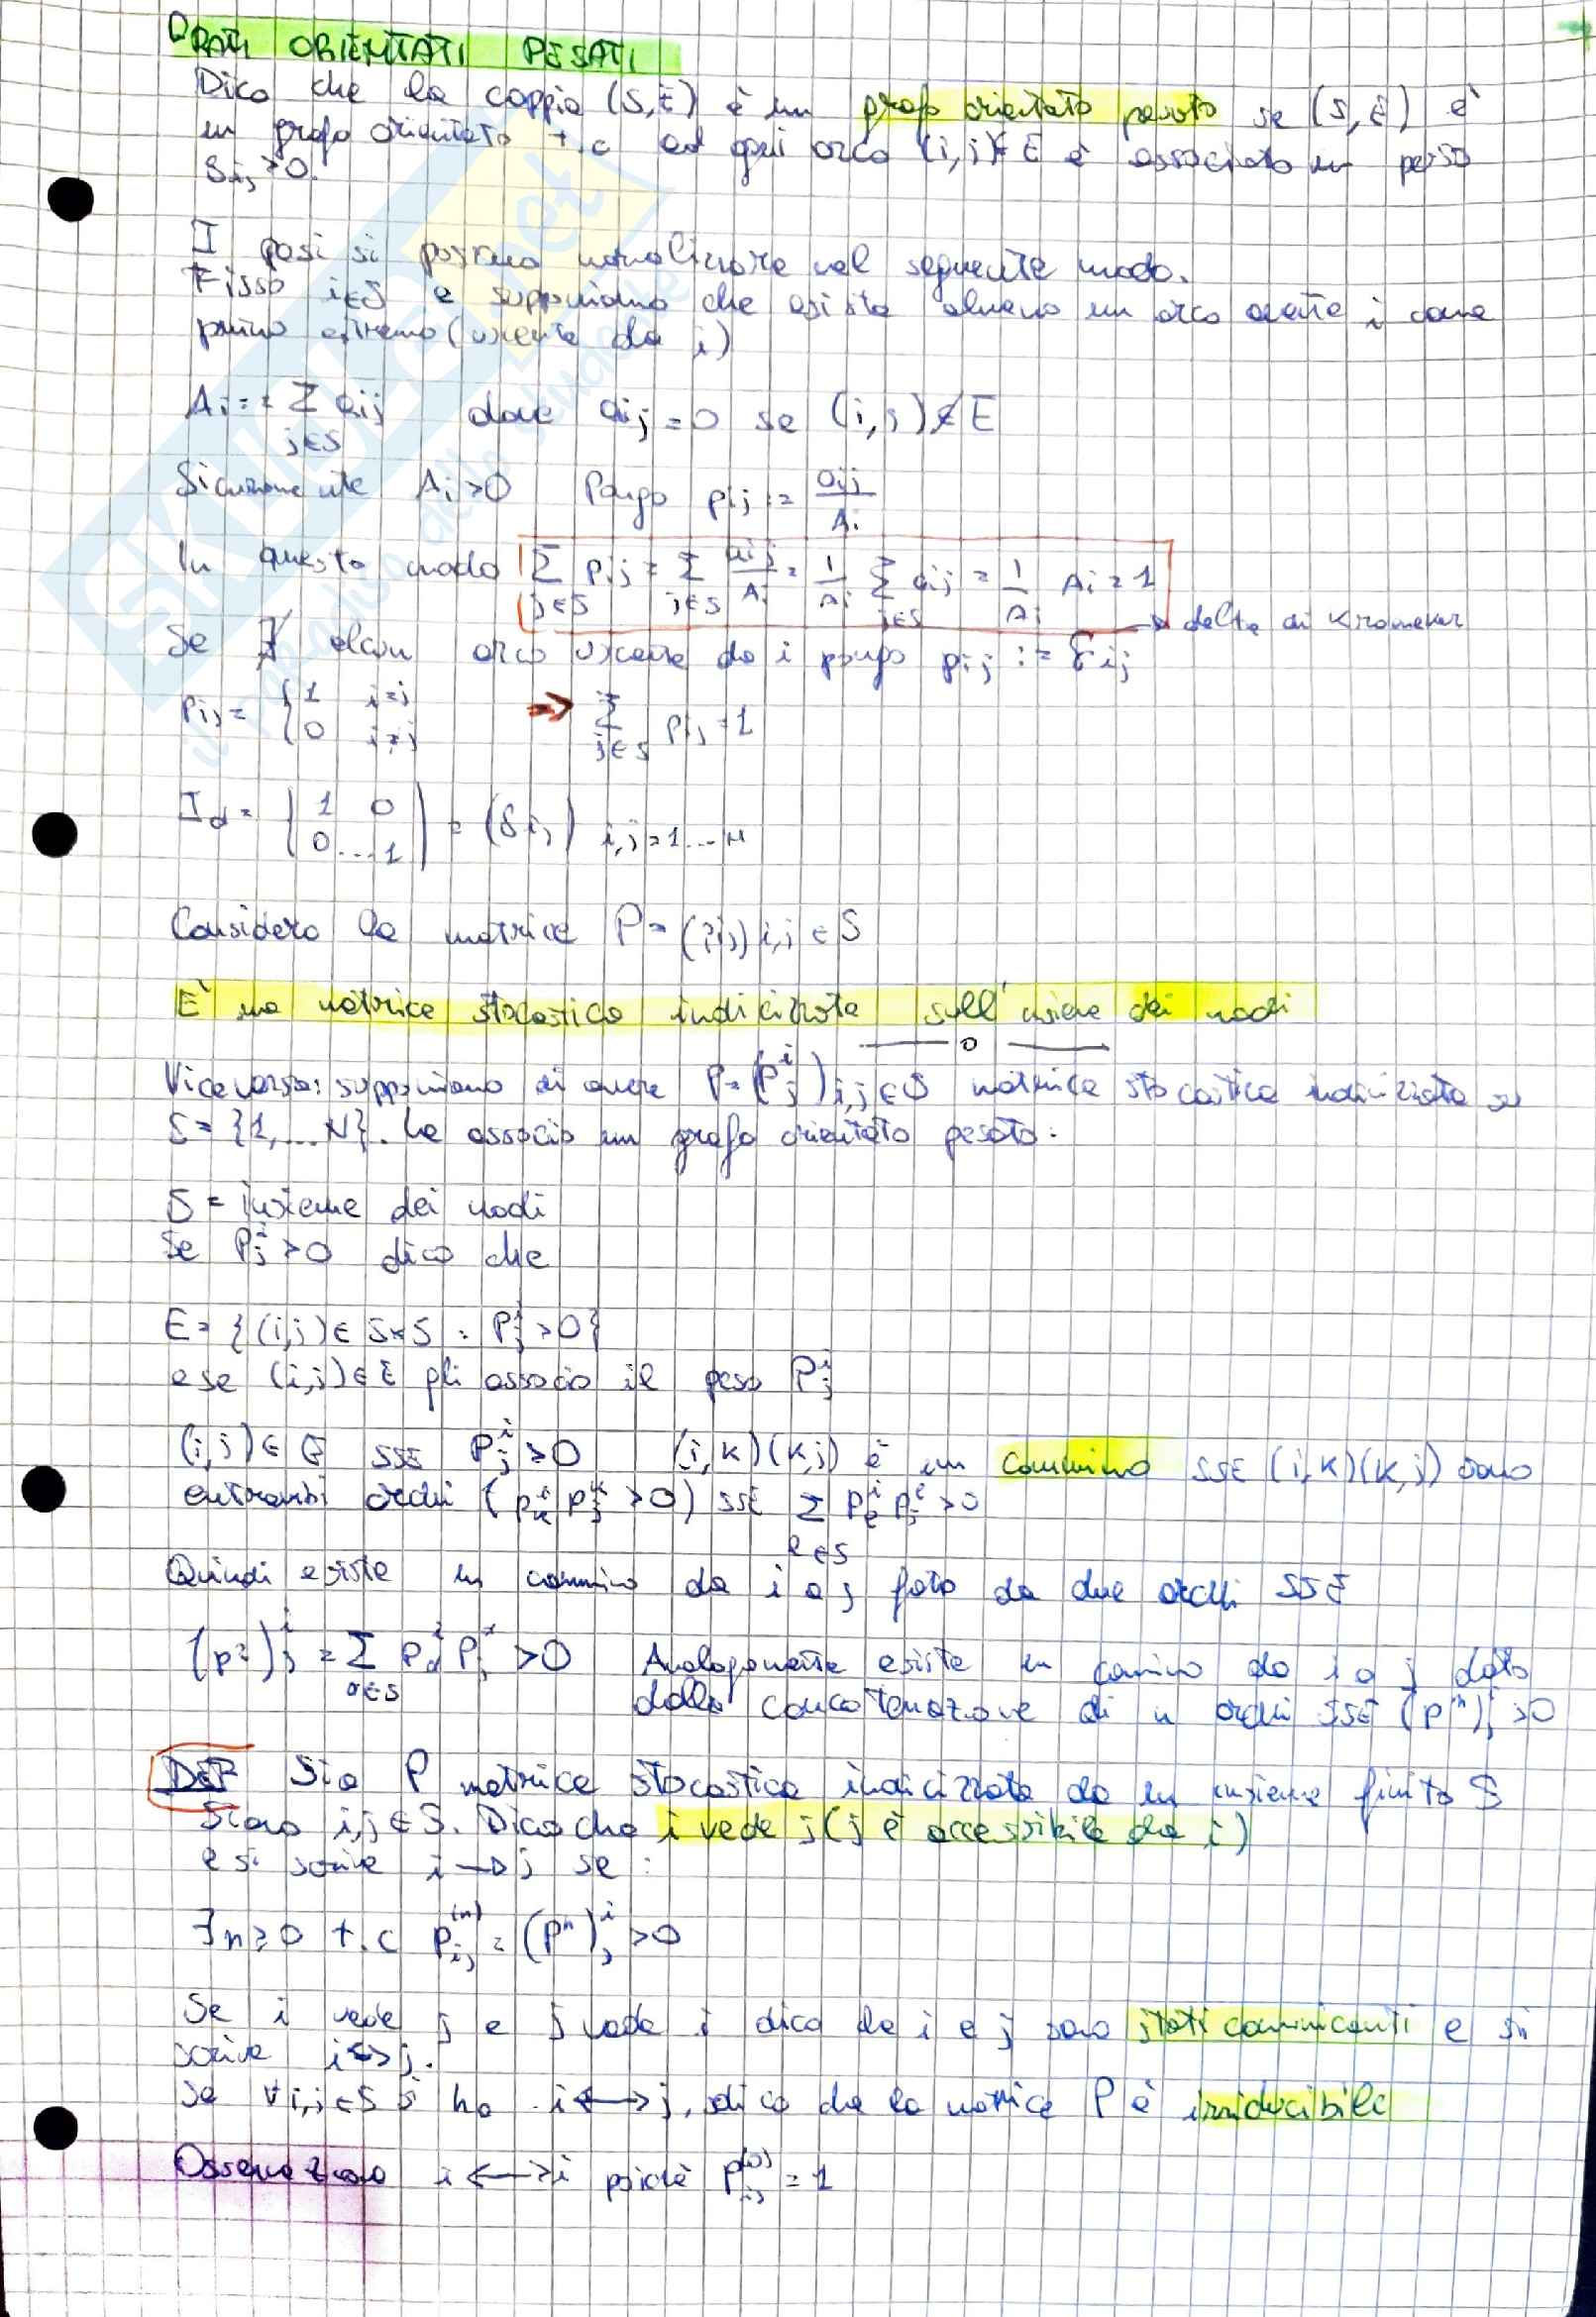 GRAFI ORIENTATI PESATI
Dico che la coppia (S,E) è un grafo orientato pesato se (S,E) è
un grafo orientato t.c ad ogni arco (i,j)∈E è associato un peso
aij>0.
I pesi si possono normalizzare nel seguente modo.
Fisso i∈S e supponiamo che esista almeno un arco avente i come
primo estremo (uscente da i)
Ai := Σ_{j∈S} aij dove aij=0 se (i,j)∉E
Sicuramente Ai>0 Pongo pij := aij/Ai
In questo modo Σ_{j∈S} pij = Σ_{j∈S} aij/Ai = 1/Ai Σ_{j∈S} aij = 1/Ai Ai = 1
→ delta di Kronecker
Se ∄ alcun arco uscente da i pongo pij := δij
pij = { 1 i=j
0 i≠j
⇒ Σ_{j∈S} pij = 1
Id = ( 1 0
0...1 ) = (δij) i,j=1...N
Considero la matrice P = (pij) i,j∈S
E' una matrice stocastica indicizzata sull'insieme dei nodi
Viceversa: supponiamo di avere P=(P^i_j) i,j∈S matrice stocastica indicizzata su
S={1,...N}. Le associo un grafo orientato pesato:
S = insieme dei nodi
Se P^i_j>0 dico che
E={(i,j)∈S×S : P^i_j>0}
e se (i,j)∈E gli associo il peso P^i_j
(i,j)∈E SSE P^i_j>0 (i,k)(k,j) è un cammino SSE (i,k)(k,j) sono
entrambi archi (p^i_k p^k_j>0) SSE Σ_{l∈S} p^i_l p^l_j>0
Quindi esiste un cammino da i a j fatto da due archi SSE
(p²)^i_j = Σ P P > 0 Analogamente esiste un camino da i a j dato
dalla concatenazione di n archi SSE (p^n)^i_j>0
DEF Sia P matrice stocastica indicizzata da un insieme finito S
Siano i,j∈S. Dico che i vede j (j è accessibile da i)
e si scrive i→j se:
∃n≥0 t.c p_ij^(n) = (P^n)^i_j>0
Se i vede j e j vede i dico che i e j sono stati comunicanti e si
scrive i↔j.
Se ∀i,j∈S si ha i↔j, dico che la matrice P è irriducibile
Osservazione i↔i poichè p_ii^(0) = 1
SKUOLA.net